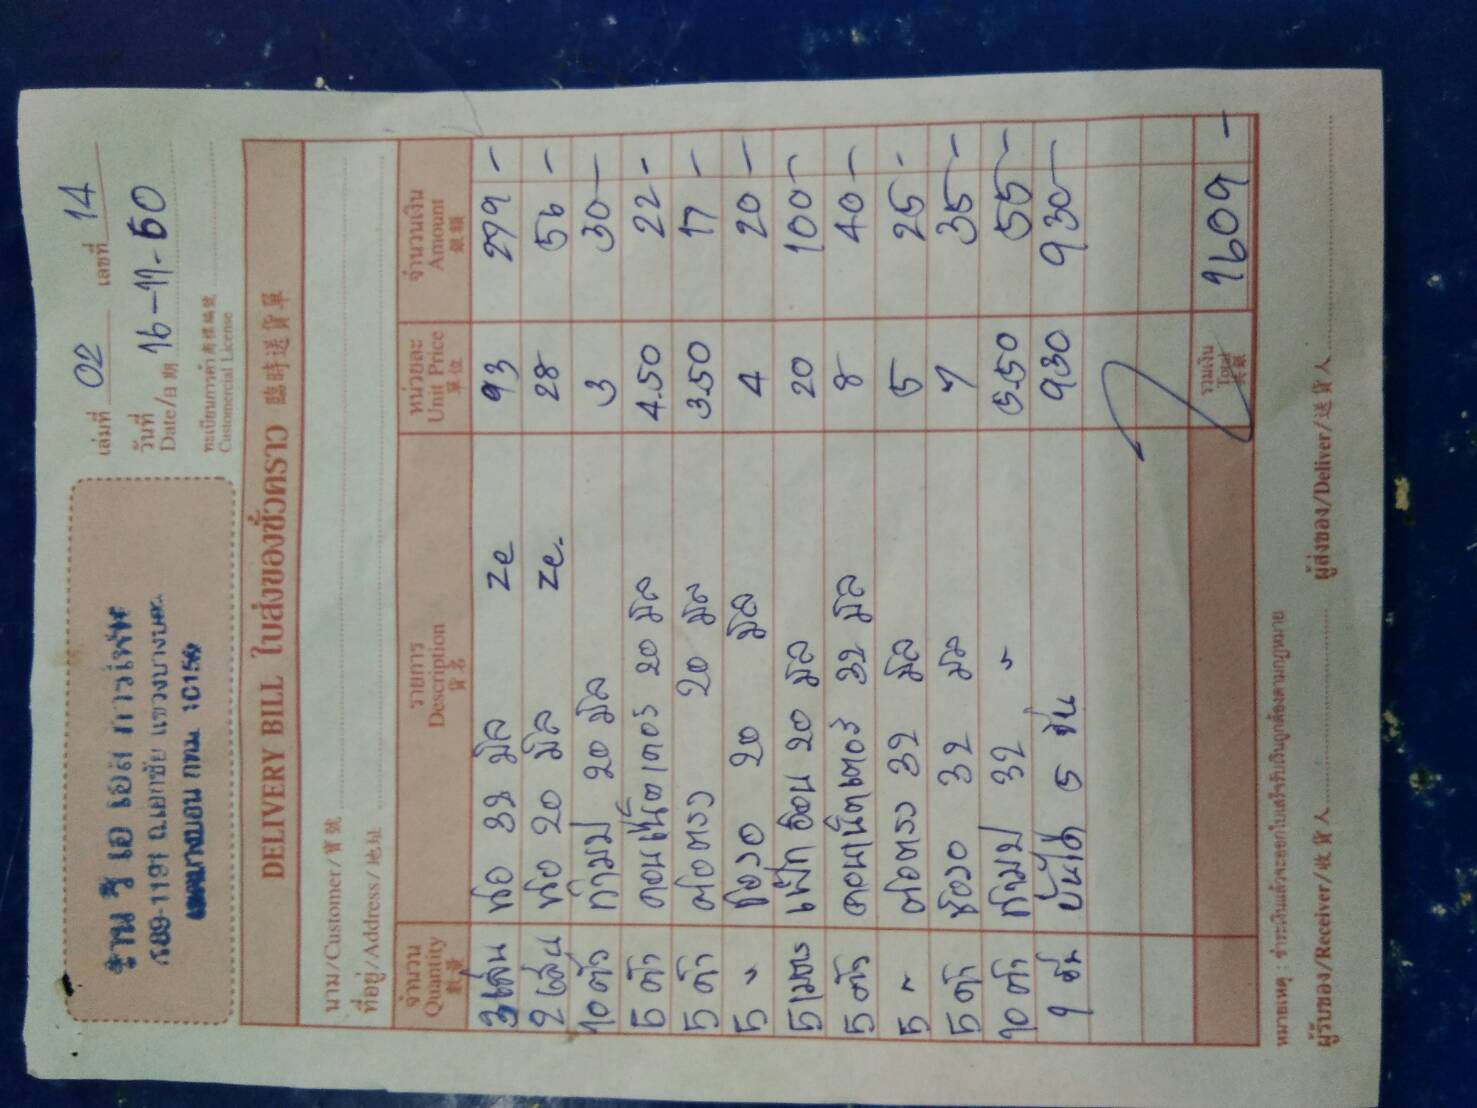 ร้าน วี เอ เอส การ์เซ่น
ถ.เอกชัย แขวงบางบอน
เขตบางบอน กทม. 10150
เล่มที่ 02 เลขที่ 14
วันที่
Date/日期 16-11-60
ทะเบียนการค้า 商標編號
Customercial License
DELIVERY BILL ใบส่งของชั่วคราว 臨時送貨單
นาม/Customer/寶號
ที่อยู่/Address/地址
จำนวน รายการ หน่วยละ จำนวนเงิน
Quantity Description Unit Price Amount
數量 貨名 單位 銀額
3 เส้น ท่อ 32 มิล ze 93 279 -
2 เส้น ท่อ 20 มิล ze. 28 56 -
10 ตัว ก้ามปู 20 มิล 3 30 -
5 ตัว คอนเน็คเตอร์ 20 มิล 4.50 22 -
5 ตัว ต่อตรง 20 มิล 3.50 17 -
5 " ข้องอ 20 มิล 4 20 -
5 เมตร เฟล็กอ่อน 20 มิล 20 100 -
5 ตัว คอนเน็คเตอร์ 32 มิล 8 40 -
5 " ต่อตรง 32 มิล 5 25 -
5 ตัว ข้องอ 32 มิล 7 35 -
10 ตัว ก้ามปู 32 " 5.50 55 -
1 อัน บันได 5 ขั้น 930 930 -
รวมเงิน
Total 1609 -
หมายเหตุ : ชำระเงินแล้วจะออกใบเสร็จรับเงินถูกต้องตามกฎหมาย
ผู้รับของ/Receiver/收貨人 ผู้ส่งของ/Deliver/送貨人